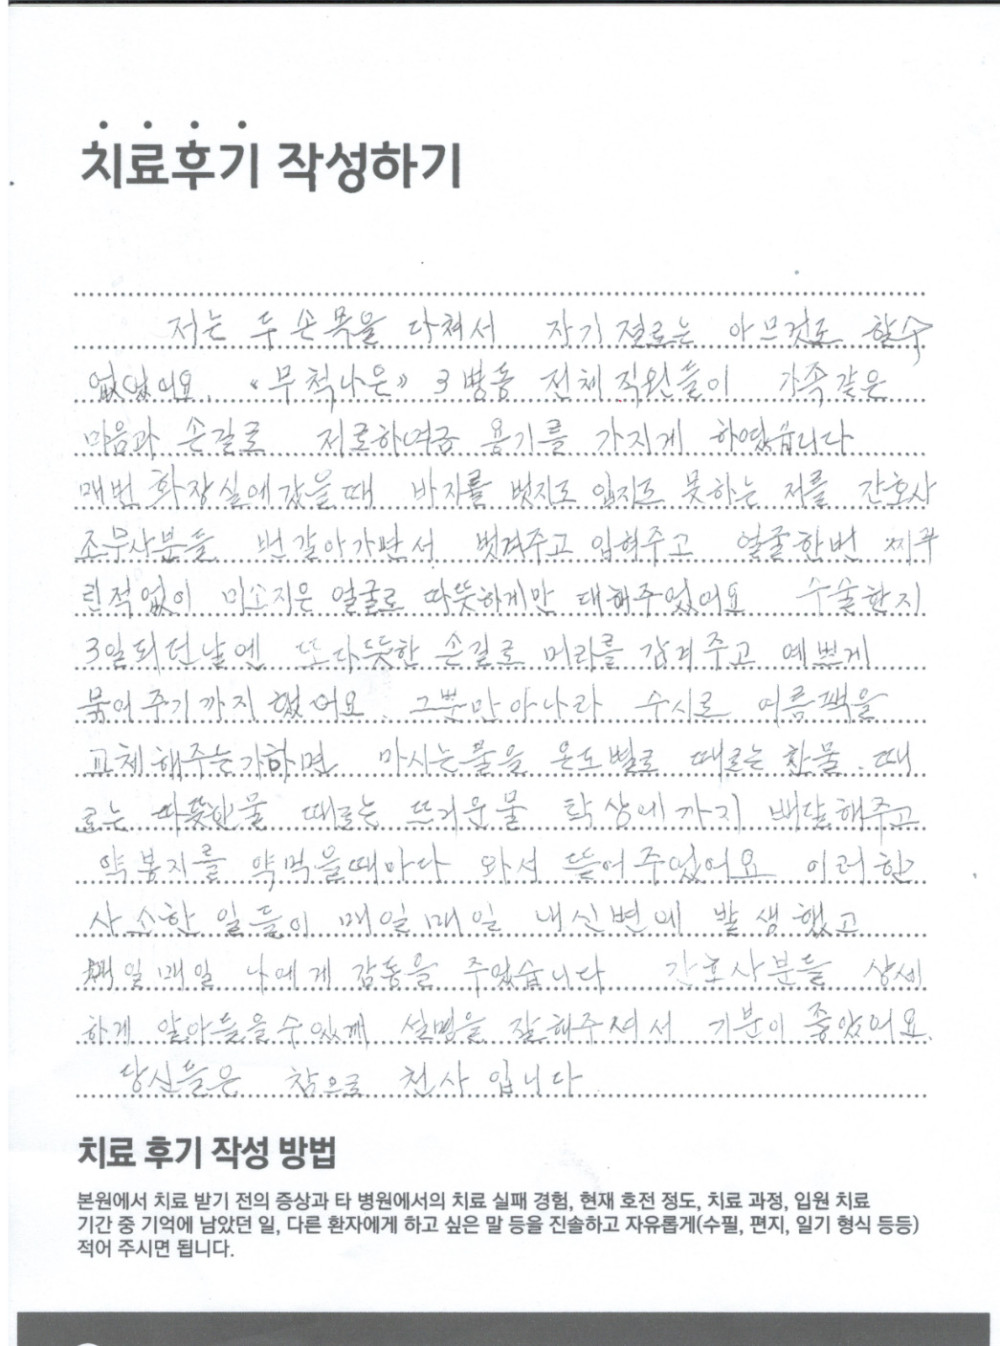 치료후기 작성하기
저는 두 손목을 다쳐서 자기절로는 아무것도 할수
없었어요. 《무척나은》 3병동 전체 직원들이 가족같은
마음과 손길로 저로하여금 용기를 가지게 하였습니다
매번 화장실에 갔을때 바지를 벗지도 입지도 못하는 저를 간호사
조무사분들 번갈아가면서 벗겨주고 입혀주고 얼굴한번 찌푸
린적없이 미소지은 얼굴로 따뜻하게만 대해주었어요 수술한지
3일되던날엔 또 다듯한 손길로 머리를 감겨주고 예쁘게
묶어주기까지 했어요. 그뿐만아니라 수시로 어름팩을
교체해주는가하면 마시는물을 온도별로 때로는 찬물. 때
로는 따뜻한물 때로는 뜨거운물 탁상에까지 배달해주고
약봉지를 약먹을때마다 와서 뜯어주었어요 이러한
사소한 일들이 매일매일 내신변에 발생했고
매일매일 나에게 감동을 주었습니다 간호사분들 상세
하게 알아들을수있게 설명을 잘해주셔서 기분이 좋았어요.
당신들은 참으로 천사입니다.
치료 후기 작성 방법
본원에서 치료 받기 전의 증상과 타 병원에서의 치료 실패 경험, 현재 호전 정도, 치료 과정, 입원 치료
기간 중 기억에 남았던 일, 다른 환자에게 하고 싶은 말 등을 진솔하고 자유롭게(수필, 편지, 일기 형식 등등)
적어 주시면 됩니다.